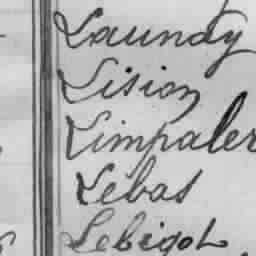 Launay
Lision
Limpaler
Lebas
Lebigot